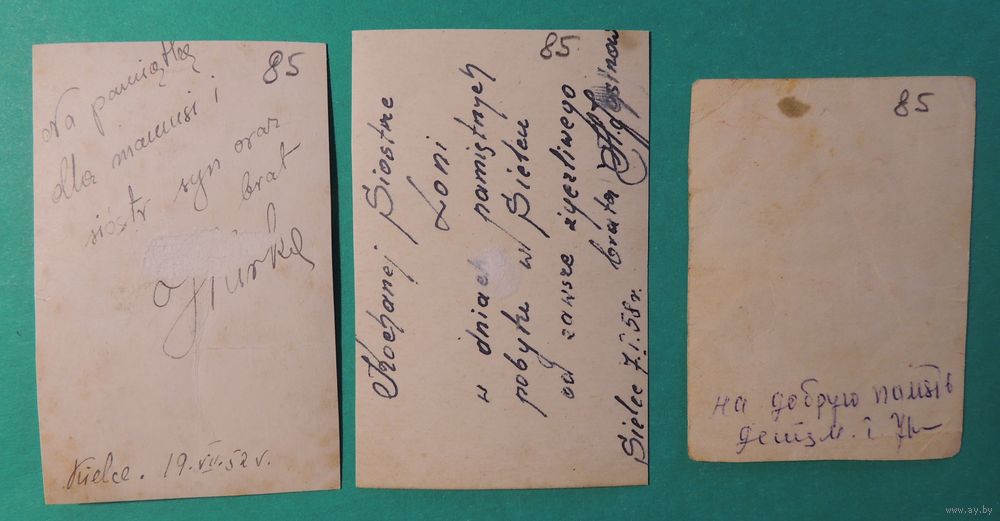 85
Na pamiątkę
dla mamusi i
sióstr syn oraz
brat
Kielce. 19.VII.52 r.
85
Kochanej Siostrze
Loni
w dniach pamiętnych
pobytu w Sielcu
od zawsze życzliwego
brata
Sielec 7.I.58 r.
85
на добрую память
www.ay.by